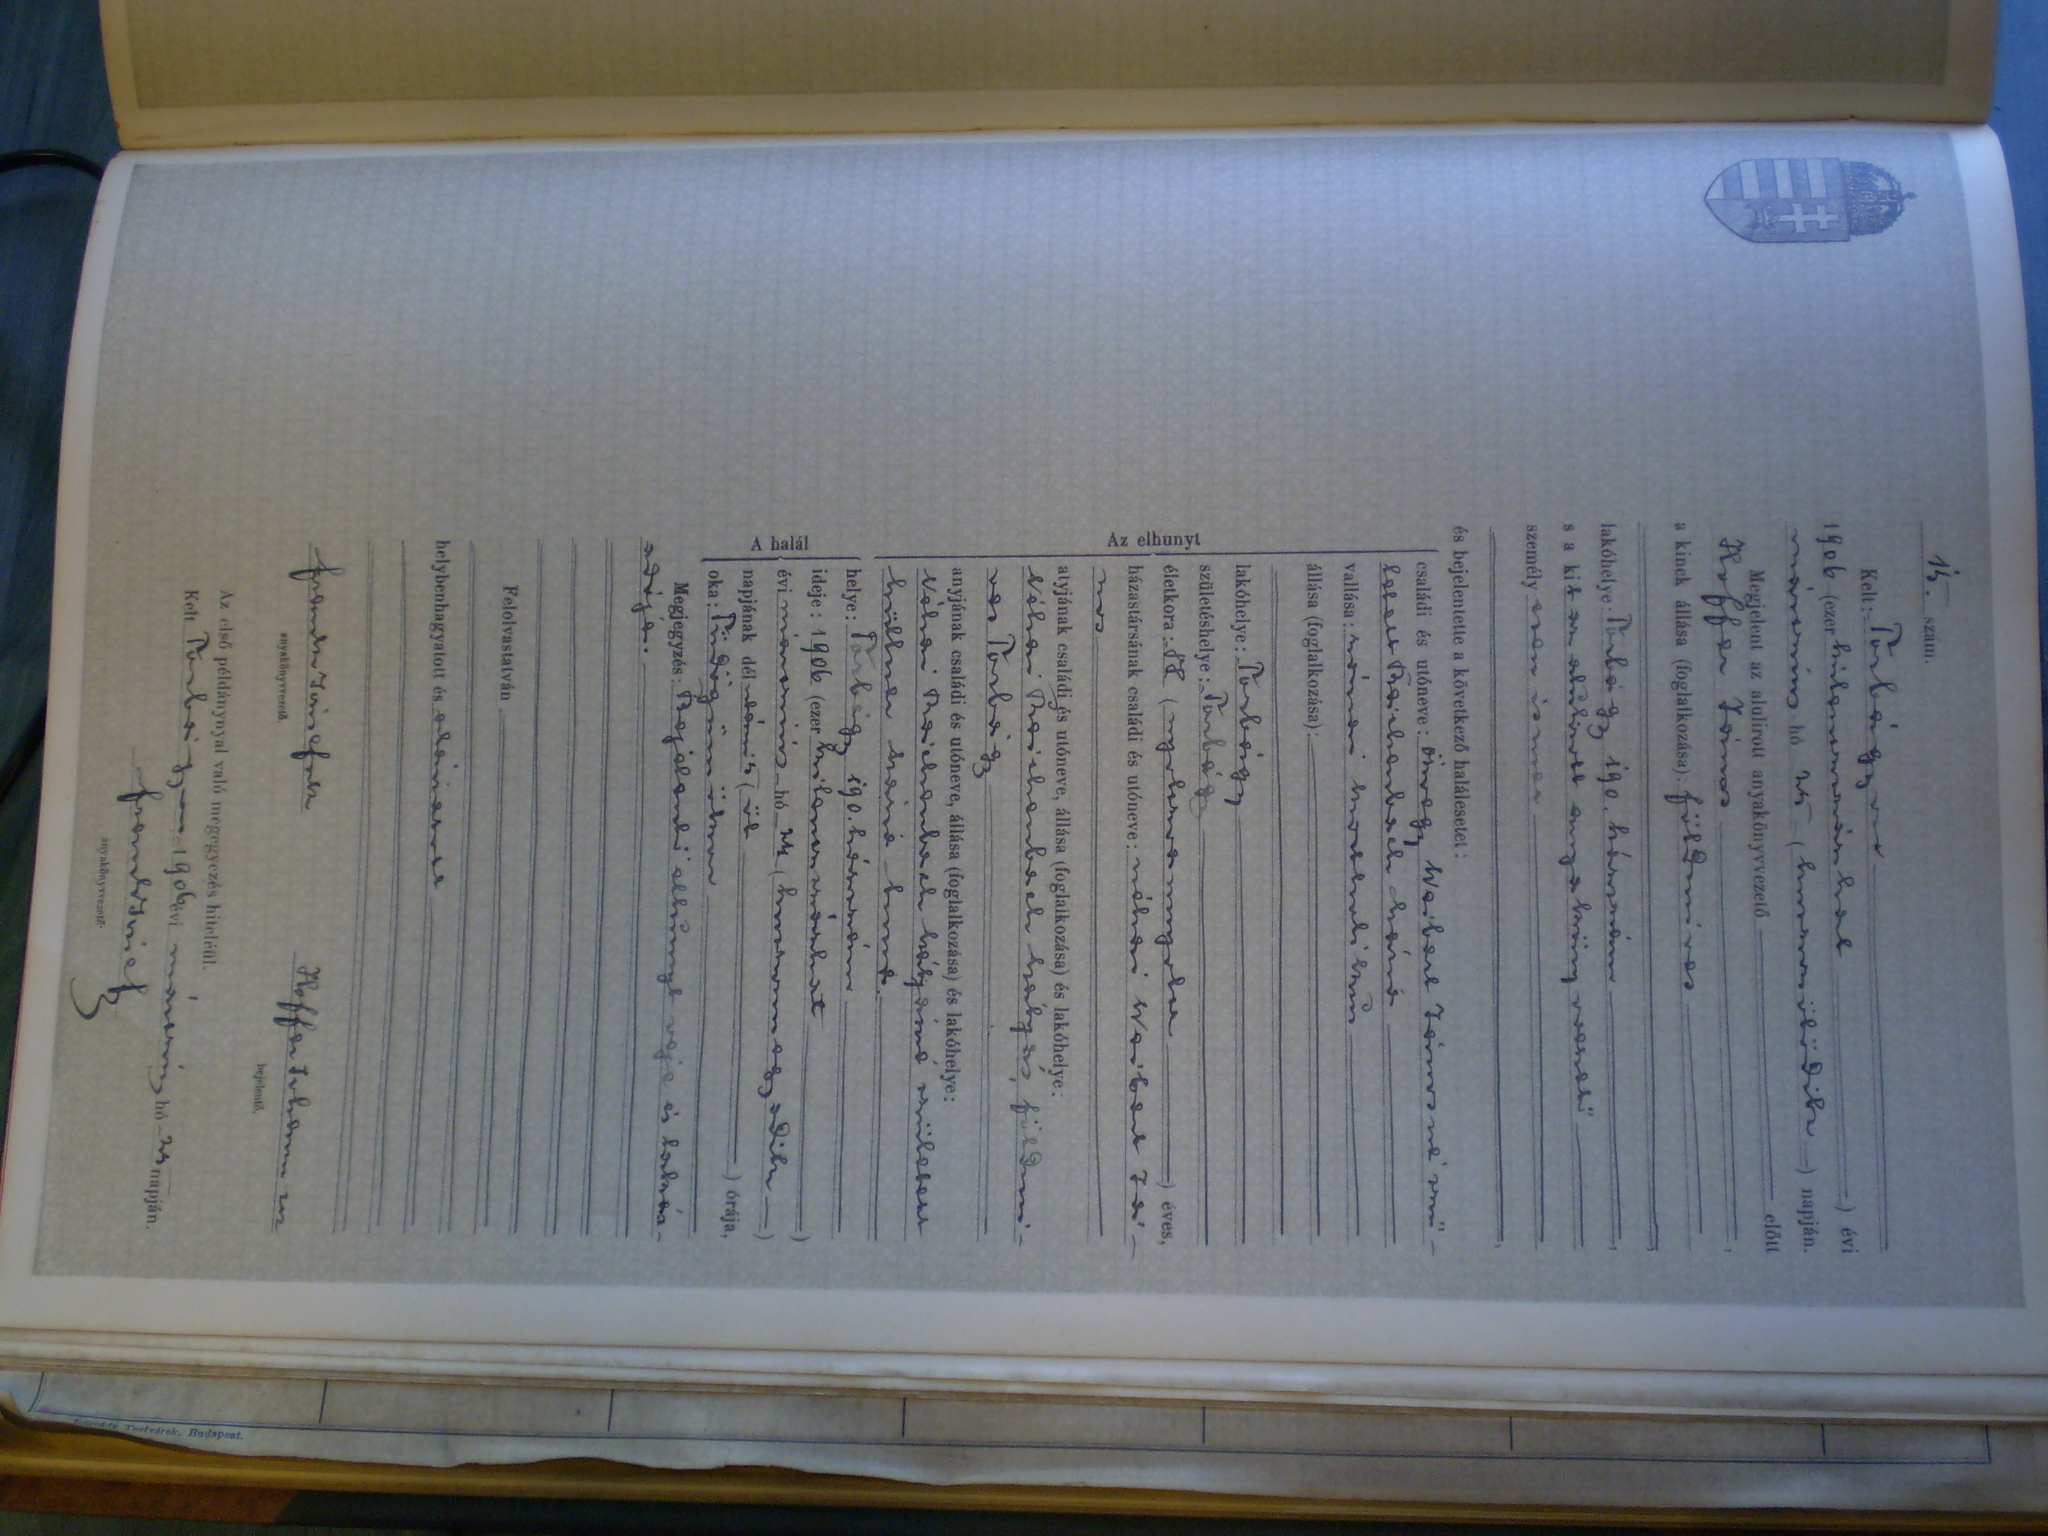 15. szám.
Kelt: Torbágyon
1906 (ezer kilencszázhat ) évi
március hó 25 ( huszonötödik ) napján.
Megjelent az alulirott anyakönyvvezető előtt
Hoffer János ,
a kinek állása (foglalkozása): földmives
,
lakóhelye: Torbágy 190. házszám ,
s a kit az alulirott anyakönyvvezető
személyesen ismer
,
és bejelentette a következő halálesetet:
Az elhunyt
családi és utóneve: özvegy Waibel Jánosné szü-
letett Reichenbach Mária
vallása: római katholikus
állása (foglalkozása):
lakóhelye: Torbágy
születéshelye: Torbágy
életkora: ( nyolc ) éves,
házastársának családi és utóneve: néhai Waibel Já-
nos
atyjának családi és utóneve, állása (foglalkozása) és lakóhelye:
Néhai Reichenbach földmi-
ves Torbágy
anyjának családi és utóneve, állása (foglalkozása) és lakóhelye:
Néhai Reichenbach született
Mária
A halál
helye: Torbágy 190. házszám
ideje: 1906 (ezer kilencszázhat )
évi március hó 24 ( huszonnegyedik )
napjának dél utáni 5 ( öt ) órája,
oka: Tüdő
Megjegyzés: Bejelentő elhunyt veje és lakótár-
Felolvastatván
helybenhagyatott és aláiratott
anyakönyvvezető. Hoffer Johann
bejelentő.
Az első példánynyal való megegyezés hiteléül.
Kelt Torbágyon 1906 évi március hó 25 napján.
anyakönyvvezető.
Testvérek, Budapest.